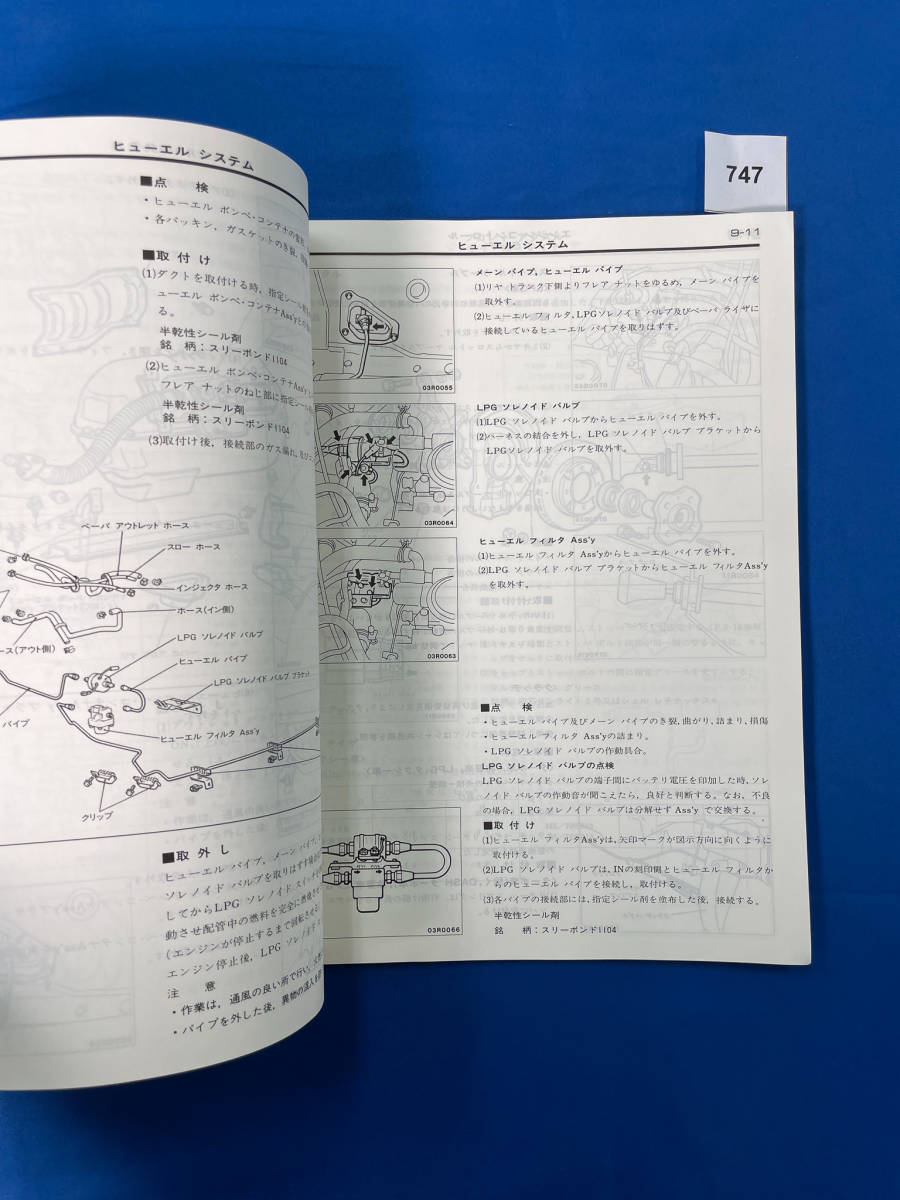 ヒューエル システム
■点 検
・ヒューエル ボンベ・コンテナの
・各パッキン，ガスケットのき裂，
■取付け
(1)ダクトを取付ける時，指定シール
ューエル ボンベ・コンテナAss'yとの
る。
半乾性シール剤
銘 柄：スリーボンド1104
(2)ヒューエル ボンベ・コンテナAss'y
フレア ナットのねじ部に指定シー
半乾性シール剤
銘 柄：スリーボンド1104
(3)取付け後，接続部のガス漏れ，及び
ベーパ アウトレット ホース
スロー ホース
インジェクタ ホース
ホース(イン側)
ース(アウト側)
LPG ソレノイド バルブ
ヒューエル パイプ
LPG ソレノイド バルブ ブラケット
パイプ
ヒューエル フィルタ Ass'y
クリップ
■取外し
ヒューエル パイプ，メーン パイプ，
ソレノイド バルブを取りはずす場合
してからLPG ソレノイド スイッチを
動させ配管中の燃料を完全に燃焼させ
(エンジンが停止するまで回転させる
エンジン停止後，LPG ソレノイド
注 意
・作業は，通風の良い所で行い，
・パイプを外した後，異物の混入を
747
9-11
ヒューエル システム
メーン パイプ，ヒューエル パイプ
(1)リヤ トランク下側よりフレア ナットをゆるめ，メーン パイプを
取外す。
(2)ヒューエル フィルタ，LPGソレノイド バルブ及びベーパ ライザに
接続しているヒューエル パイプを取りはずす。
03R0055
LPG ソレノイド バルブ
(1)LPG ソレノイド バルブからヒューエル パイプを外す。
(2)ハーネスの結合を外し，LPG ソレノイド バルブ ブラケットから
LPGソレノイド バルブを取外す。
03R0064
ヒューエル フィルタ Ass'y
(1)ヒューエル フィルタ Ass'yからヒューエル パイプを外す。
(2)LPG ソレノイド バルブ ブラケットからヒューエル フィルタAss'y
を取外す。
03R0063
■点 検
・ヒューエル パイプ及びメーン パイプのき裂，曲がり，詰まり，損傷
・ヒューエル フィルタ Ass'yの詰まり。
・LPG ソレノイド バルブの作動具合。
LPG ソレノイド バルブの点検
LPG ソレノイド バルブの端子間にバッテリ電圧を印加した時，ソレ
ノイド バルブの作動音が聞こえたら，良好と判断する。なお，不良
の場合，LPG ソレノイド バルブは分解せず Ass'y で交換する。
■取付け
(1)ヒューエル フィルタAss'yは，矢印マークが図示方向に向くように
取付ける。
(2)LPG ソレノイド バルブは，INの刻印側とヒューエル フィルタか
らのヒューエル パイプを接続し，取付ける。
(3)各パイプの接続部には，指定シール剤を塗布した後，接続する。
半乾性シール剤
銘 柄：スリーボンド1104
03R0066